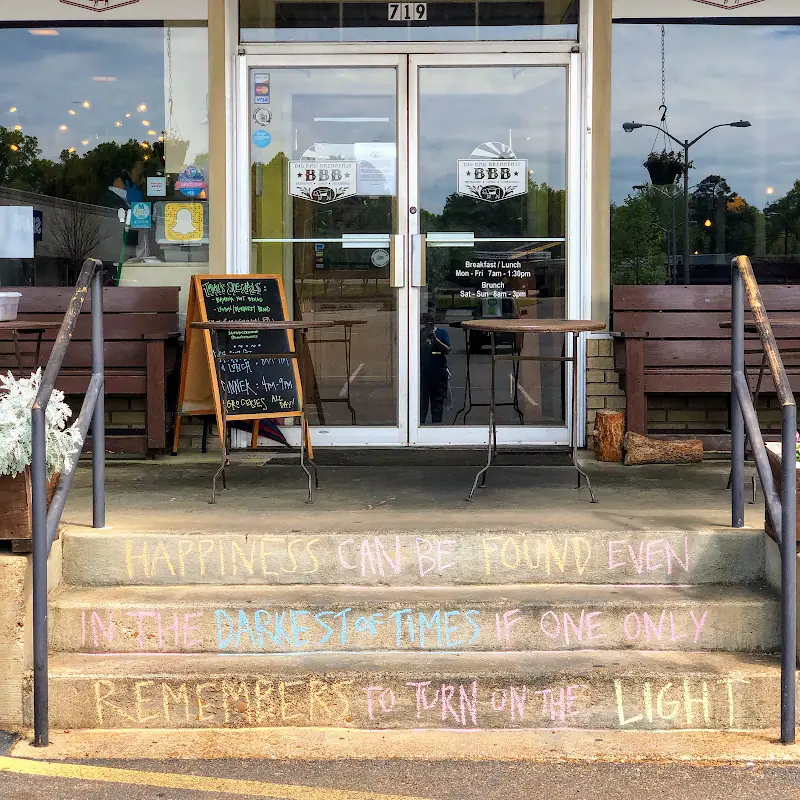 719
VISA
BIG BAD BREAKFAST
BBB
BIG BAD BREAKFAST
BBB
Breakfast / Lunch
Mon - Fri 7am - 1:30pm
Brunch
Sat - Sun 8am - 3pm
TODAY'S SPECIALS:
DINNER: 4PM-9PM
GROCERIES ALL DAY!!
HAPPINESS CAN BE FOUND EVEN
IN THE DARKEST OF TIMES IF ONE ONLY
REMEMBERS TO TURN ON THE LIGHT